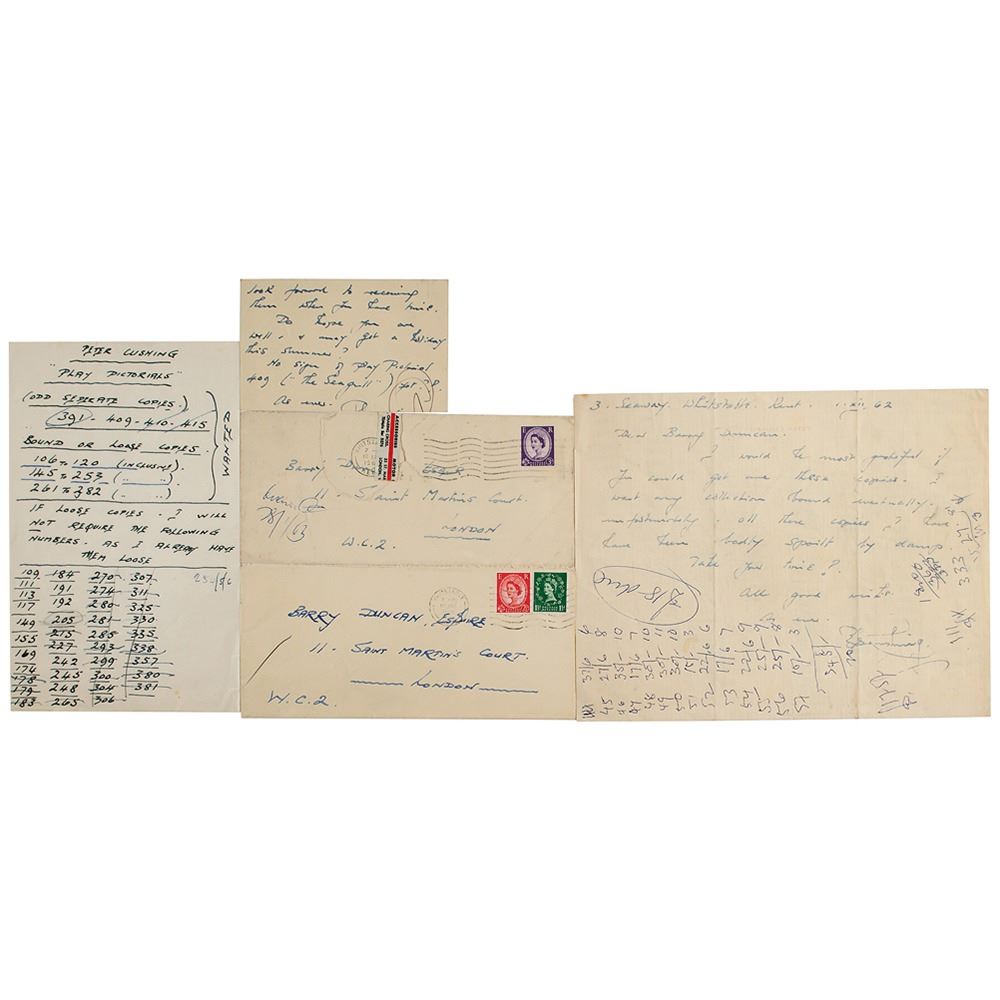 PETER CUSHING
"PLAY PICTORIALS"
(ODD SEPERATE COPIES.)
391 - 409 - 410 - 415
BOUND OR LOOSE COPIES.
106 TO 120 (INCLUSIVE)
145 TO 259 ( " )
261 TO 382 ( " )
WANTED
IF LOOSE COPIES - I WILL
NOT REQUIRE THE FOLLOWING
NUMBERS. AS I ALREADY HAVE
THEM LOOSE
109 184 270 307
111 191 274 311
113 192 280 325
117 205 281 330
149 215 285 335
155 227 293 338
169 242 299 357
174 245 300 380
178 248 304 381
179 265 306
183
look forward to receiving
them when you have time.
Do hope you are
well - & may get a holiday
this summer?
No sign of Play Pictorial
409 ("The Seagull") yet?
As ever.
ACCESSORIES
MOTOR
LONDON
Barry
11 - Saint Martin's Court.
LONDON
W.C.2.
28/1/63
BARRY DUNCAN, ESQUIRE
11 - SAINT MARTIN'S COURT.
LONDON
W.C.2.
3. Seaway. Whitstable. Kent. 62
Dear Barry Duncan.
I would be most grateful if
you could get me these copies. I
want my collection bound eventually &
unfortunately - all these copies I have
have been badly spoilt by damp
Take your time!
All good wishes.
As ever.
£18 due
45
46
47
48
49
50
51
52
53
54
55
56
57
333
111